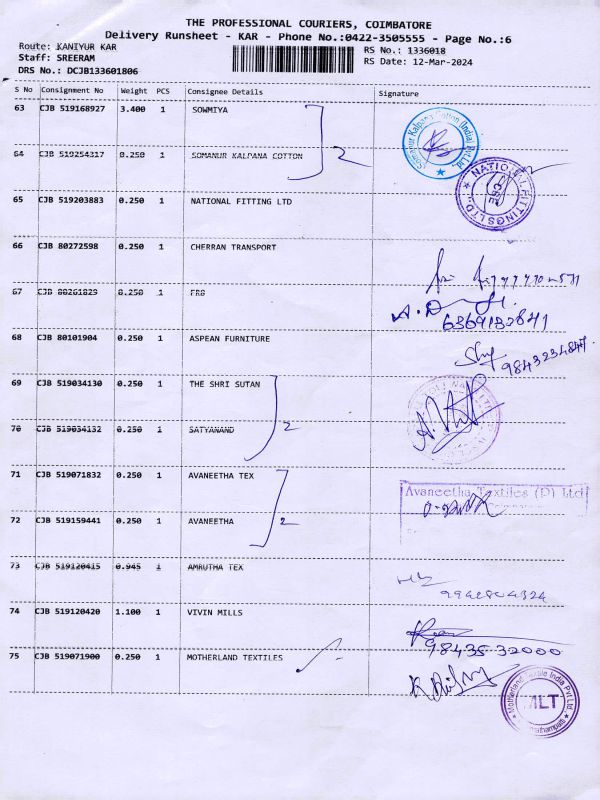 THE PROFESSIONAL COURIERS, COIMBATORE
Delivery Runsheet - KAR - Phone No.:0422-3505555 - Page No.:6
Route: KANIYUR KAR
Staff: SREERAM
DRS No.: DCJB133601806
RS No.: 1336018
RS Date: 12-Mar-2024
S No Consignment No Weight PCS Consignee Details Signature
63 CJB 519168927 3.400 1 SOWMIYA
64 CJB 519254317 0.250 1 SOMANUR KALPANA COTTON 2
Somanur Kalpana Cotton (India) Pvt Ltd.
65 CJB 519203883 0.250 1 NATIONAL FITTING LTD
NATIONAL FITTINGS LTD
66 CJB 80272598 0.250 1 CHERRAN TRANSPORT
67 CJB 80261829 0.250 1 FRG
6369182841
68 CJB 80101904 0.250 1 ASPEAN FURNITURE
9843234847
69 CJB 519034130 0.250 1 THE SHRI SUTAN
70 CJB 519034132 0.250 1 SATYANAND 2
71 CJB 519071832 0.250 1 AVANEETHA TEX
Avaneetha Textiles (P) Ltd
72 CJB 519159441 0.250 1 AVANEETHA 2
73 CJB 519120415 0.945 1 AMRUTHA TEX
74 CJB 519120420 1.100 1 VIVIN MILLS
98435-32000
75 CJB 519071900 0.250 1 MOTHERLAND TEXTILES
Motherland Textile India Pvt Ltd.
MLT